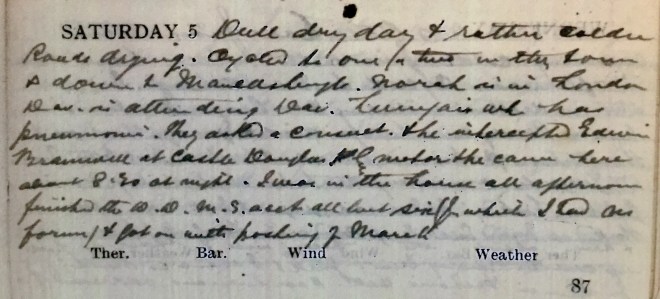 SATURDAY 5 Dull dry day & rather colder
Roads drying. Cycled to one or two in the town
& down to . March is in London
Dav. is attending Dav. wh has
pneumonia. They asked a consult. & he intercepted Edwin
Bramwell at Castle Douglas & motor he came here
about 8.30 at night. I was in the house all afternoon
finished the D.D.M.S. acct all but which I had no
forms, & got on with posting of March
Ther. Bar. Wind Weather
87